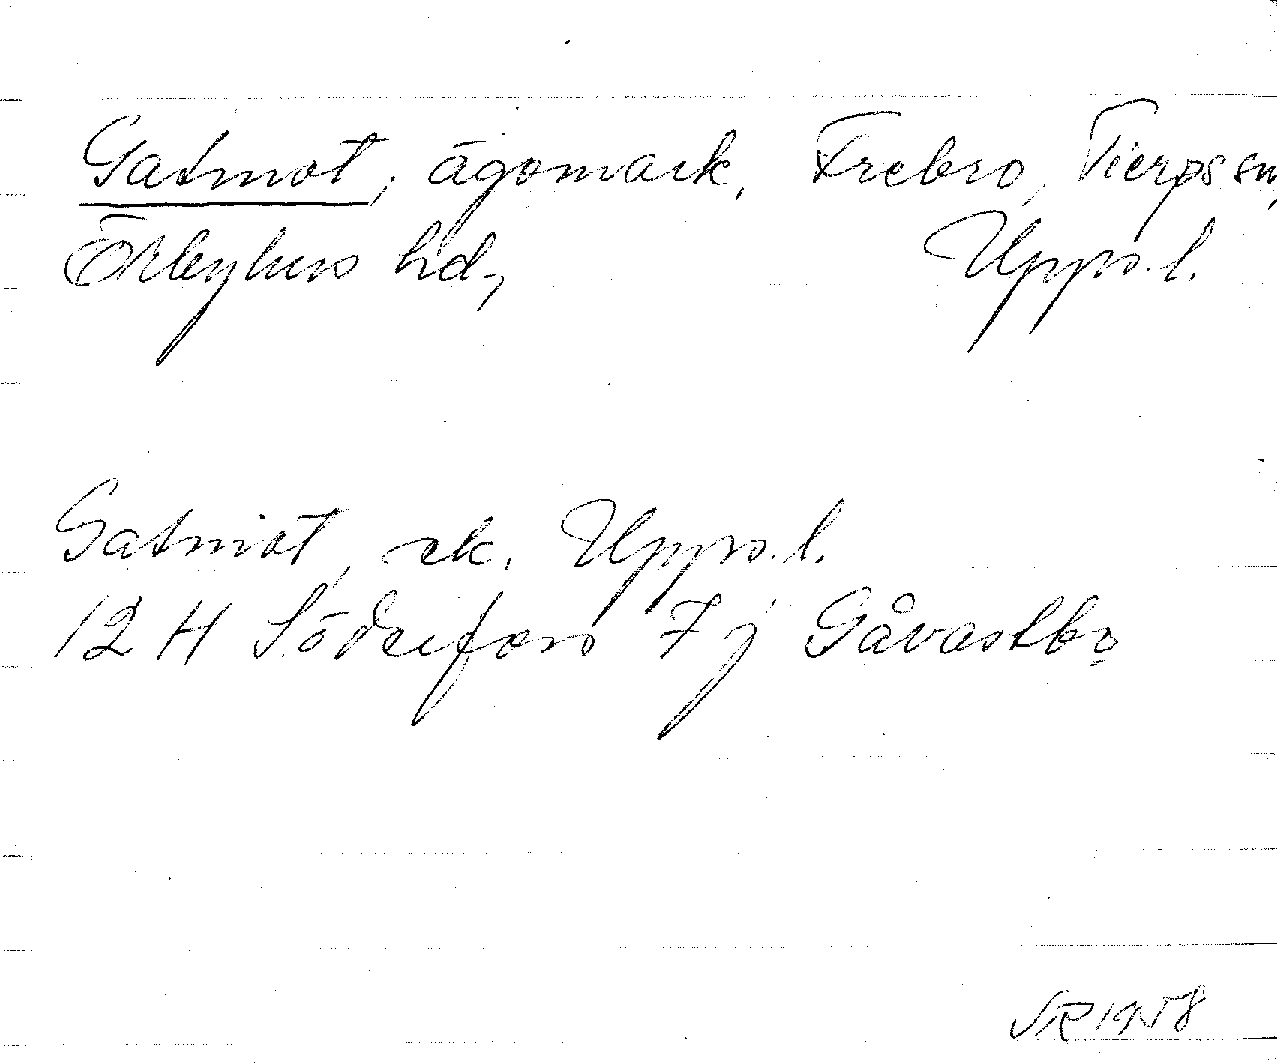 Gatmot, ägomark, Frebro, Tierps sn,
Örbyhus hd, Upps. l.
Gatmot, ek. Upps. l.
12 H Söderfors 7 j Gåvastbo
1958